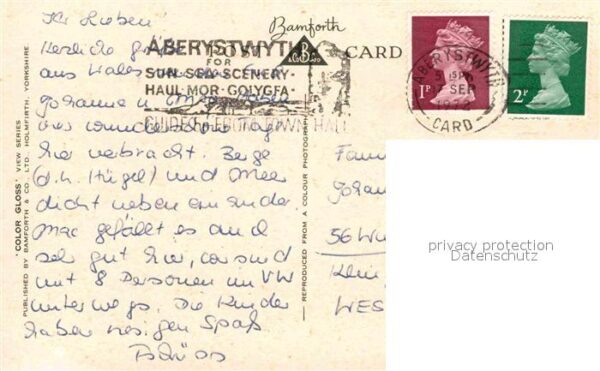 Ihr Lieben!
Herzliche Grüße
aus Wales
Johanna
wunderschöne Tage
hier verbracht. Berge
(d.h. Hügel) und Meer
dicht nebeneinander
Mac gefällt es auch
sehr gut hier, wir sind
mit 8 Personen im VW
unterwegs. Die Kinder
haben riesigen Spaß
Tschüss
Bamforth
POST CARD
B
& Co Ltd
ABERYSTWYTH
FOR
SUN·SEA·SCENERY·
HAUL·MOR·GOLYGFA·
GUIDE TOWN HALL
ABERYSTWYTH
SEP
CARD
1P
2P
'COLOR GLOSS' VIEW SERIES
PUBLISHED BY BAMFORTH & CO. LTD. HOLMFIRTH, YORKSHIRE
REPRODUCED FROM A COLOUR PHOTOGRAPH
Fam
Johann
56 Wu
Klein
WES
privacy protection
Datenschutz